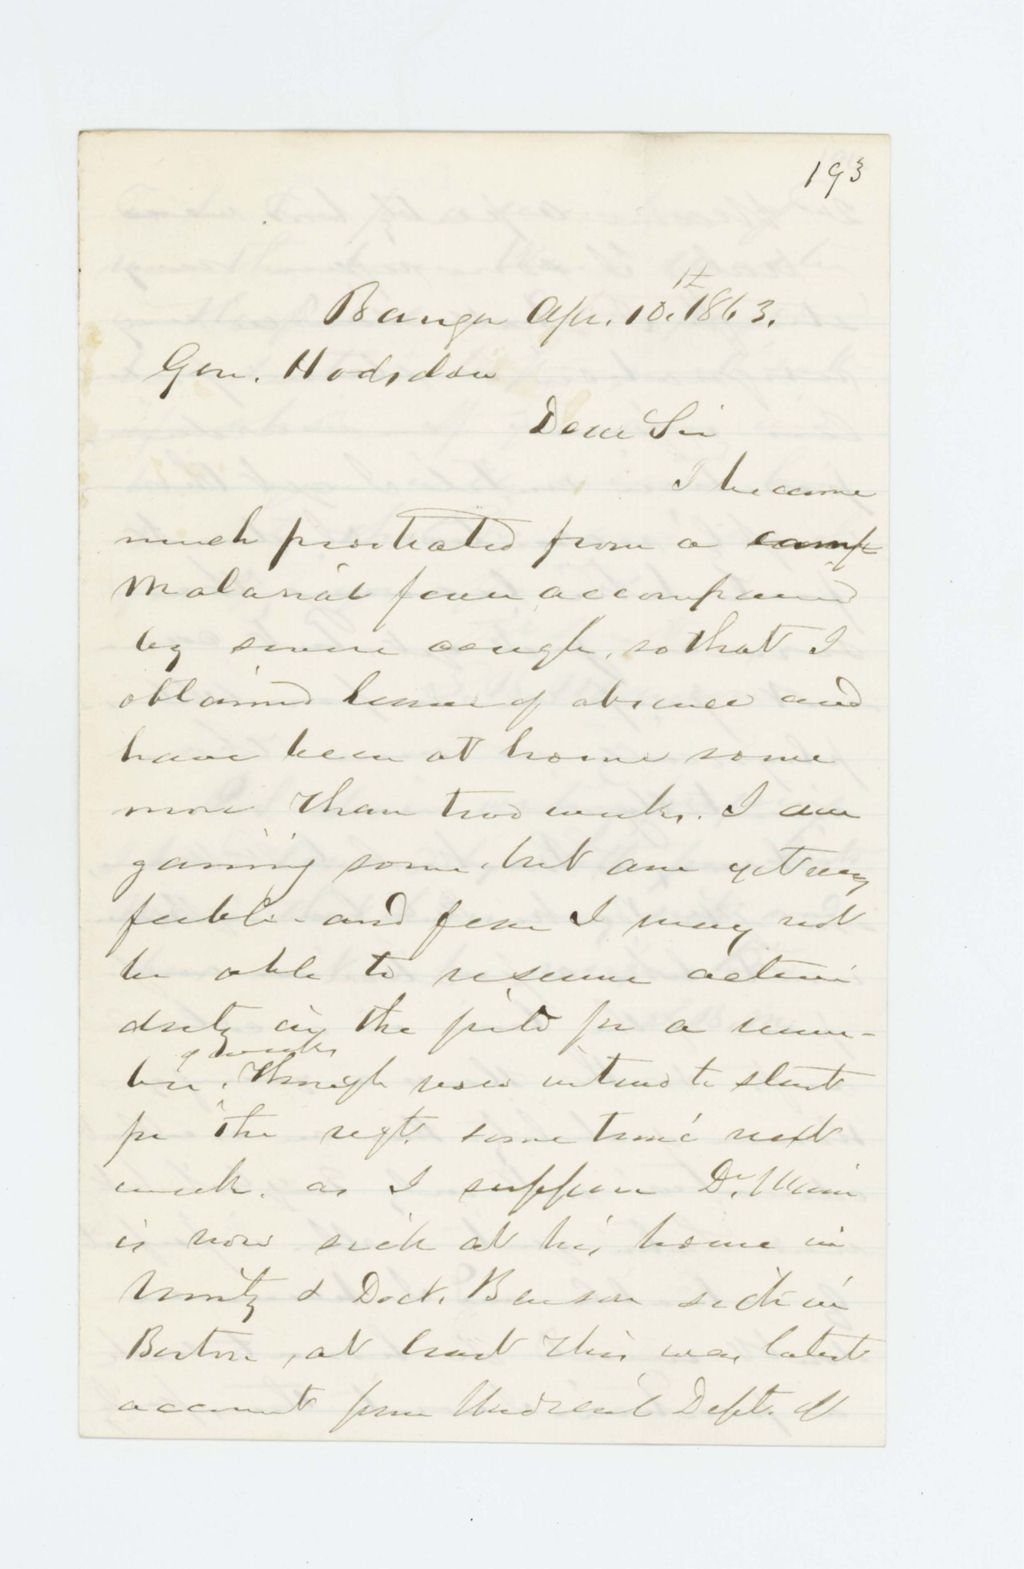 193
Bangor Apr. 10.th 1863.
Gen. Hodsdon
Dear Sir
I became
much prostrated from a camp
Malarial fever accompanied
by severe cough, so that I
obtained leave of absence and
have been at home some
more than two weeks. I am
gaining some, but am yet very
feeble - and fear I may not
be able to resume active
duty in the field for a num-
of weeks
ber. Though now intend to start
for the regt. some time next
week. as I suppose Dr.
is now sick at his home in
Unity & Doct. Benson sick in
Boston, at least this was latest
account from Medical Dept. of